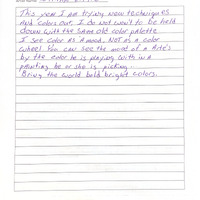 This year I am trying new techniques
and colors out. I do not won't to be held
down with the same old color palette
I see color as a mood. NOT as a color
wheel you can see the mood of a Artis
by the color he is playing with in a
painting he or she is picking.
Bring the world bold bright colors.